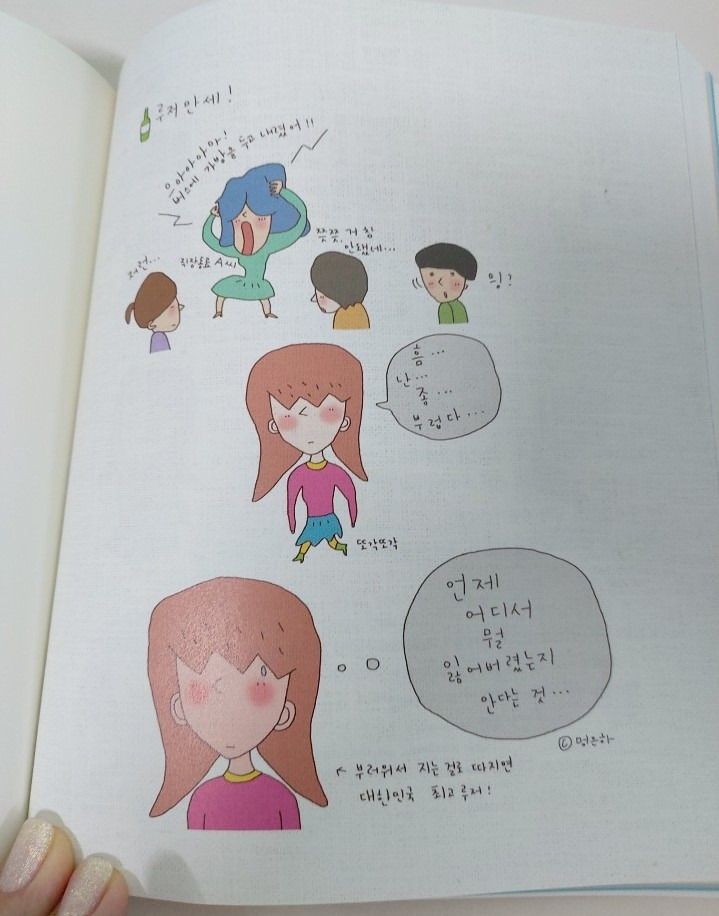 루저 만세!
으아아아아!
버스에 가방을 두고 내렸어!!
저런...
직장동료 A씨
쯧쯧, 거 참
안됐네...
잉?
흠...
난...
좀...
부럽다...
또각또각
언제
어디서
뭘
잃어버렸는지
안다는 것...
ⓒ 명은하
↖ 부러워서 지는 걸로 따지면
대한민국 최고 루저!